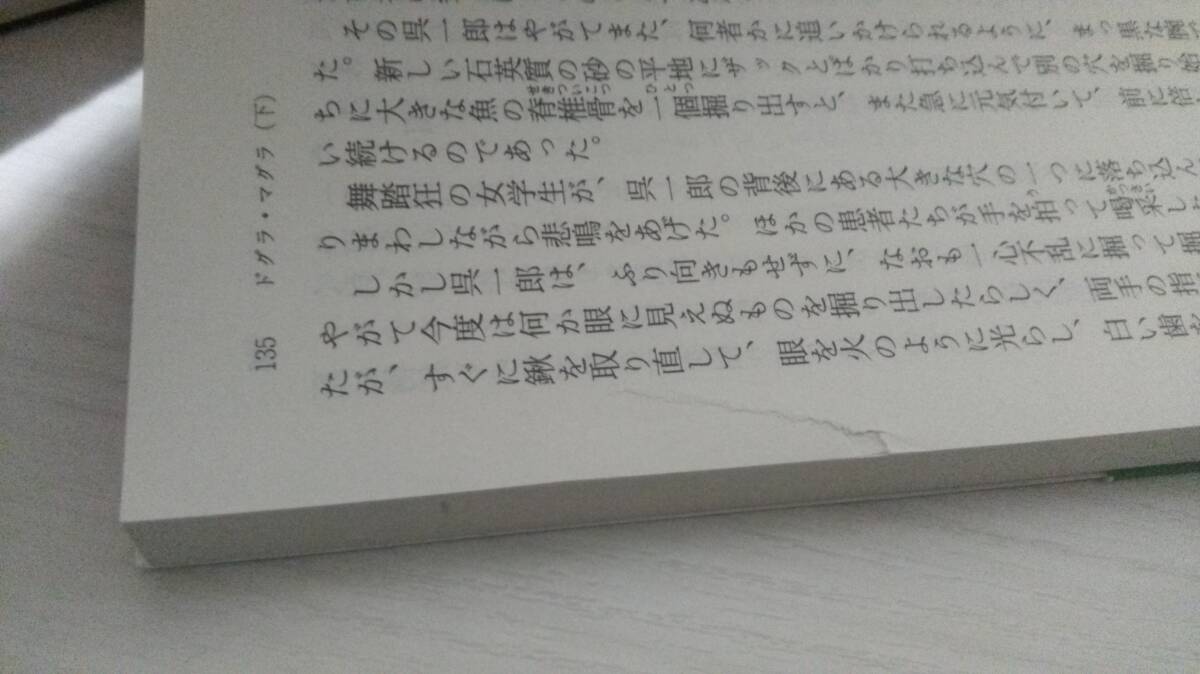 その呉一郎はやがてまた、何者かに追いかけられるように、まっ
た。新しい石英質の砂の平地にザックとばかり打ち込んで別の穴を掘り
ちに大きな魚の脊椎骨を一個掘り出すと、また急に元気付いて、前に倍
せきついこつ
ひとつ
い続けるのであった。
舞踏狂の女学生が、呉一郎の背後にある大きな穴の一つに落ち込ん
りまわしながら悲鳴をあげた。ほかの患者たちが手を拍って喝采し
う
かっさい
しかし呉一郎は、ふり向きもせずに、なおも一心不乱に掘って掘
やがて今度は何か眼に見えぬものを掘り出したらしく、両手の指
たが、すぐに鍬を取り直して、眼を火のように光らし、白い歯
135
ドグラ・マグラ(下)